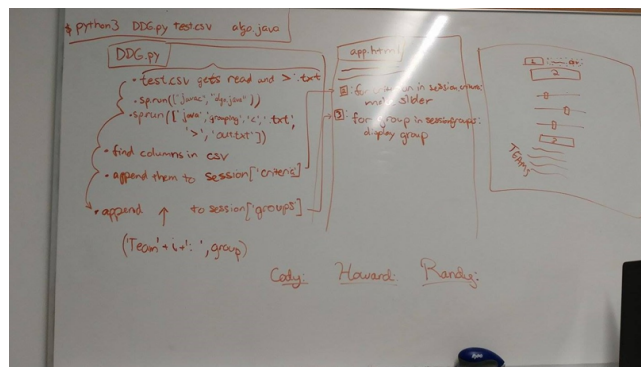 $ python3 DDG.py test.csv algo.java
DDG.py
• test.csv gets read and > .txt
• sp.run(['javac', "algo.java"])
• sp.run(['java', 'grouping', '<', '.txt',
'>', 'out.txt'])
• find columns in csv
• append them to session['criteria']
• append ↑ to session['groups']
('Team' + i + ': ', group)
app.html
1: for criterion in session.criteria:
make slider
2: for group in session.groups:
display group
1
2
2
TEAMS
Cody: Howard: Randy: